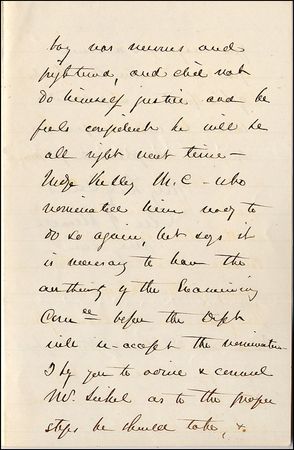 boy was nervous and
frightened, and did not
do himself justice and he
feels confident he will be
all right next time -
Judge Kelley M.C - who
nominated him ready to
do so again, but says it
is necessary to have the
authority of the Examining
Comee before the Dept
will re-accept the nomination
I beg you to advise & counsel
Mr. Sickel as to the proper
steps he should take, &